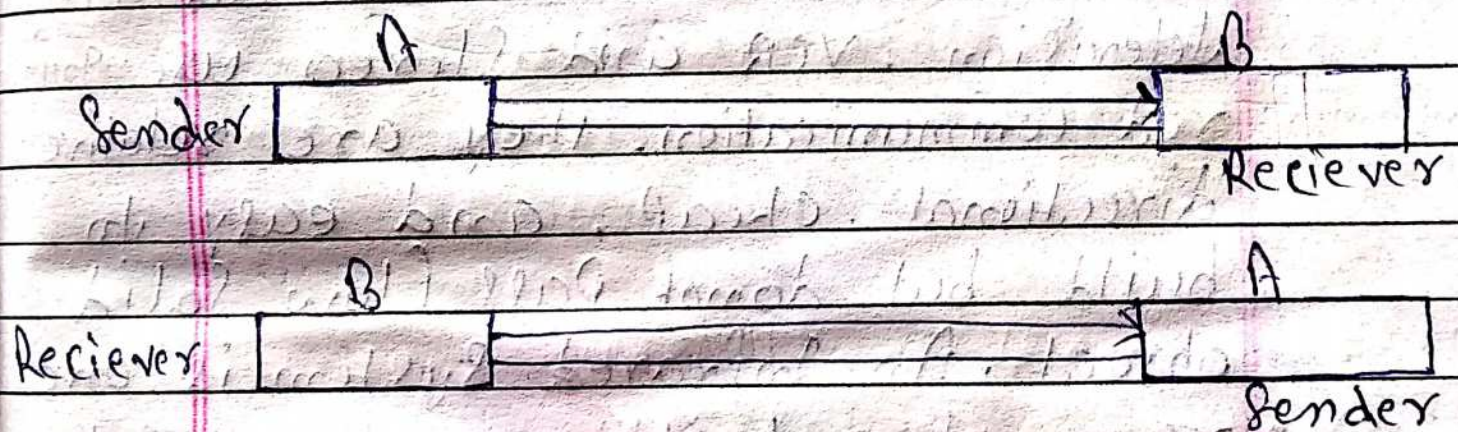 A B
Sender
Reciever
B A
Reciever
Sender